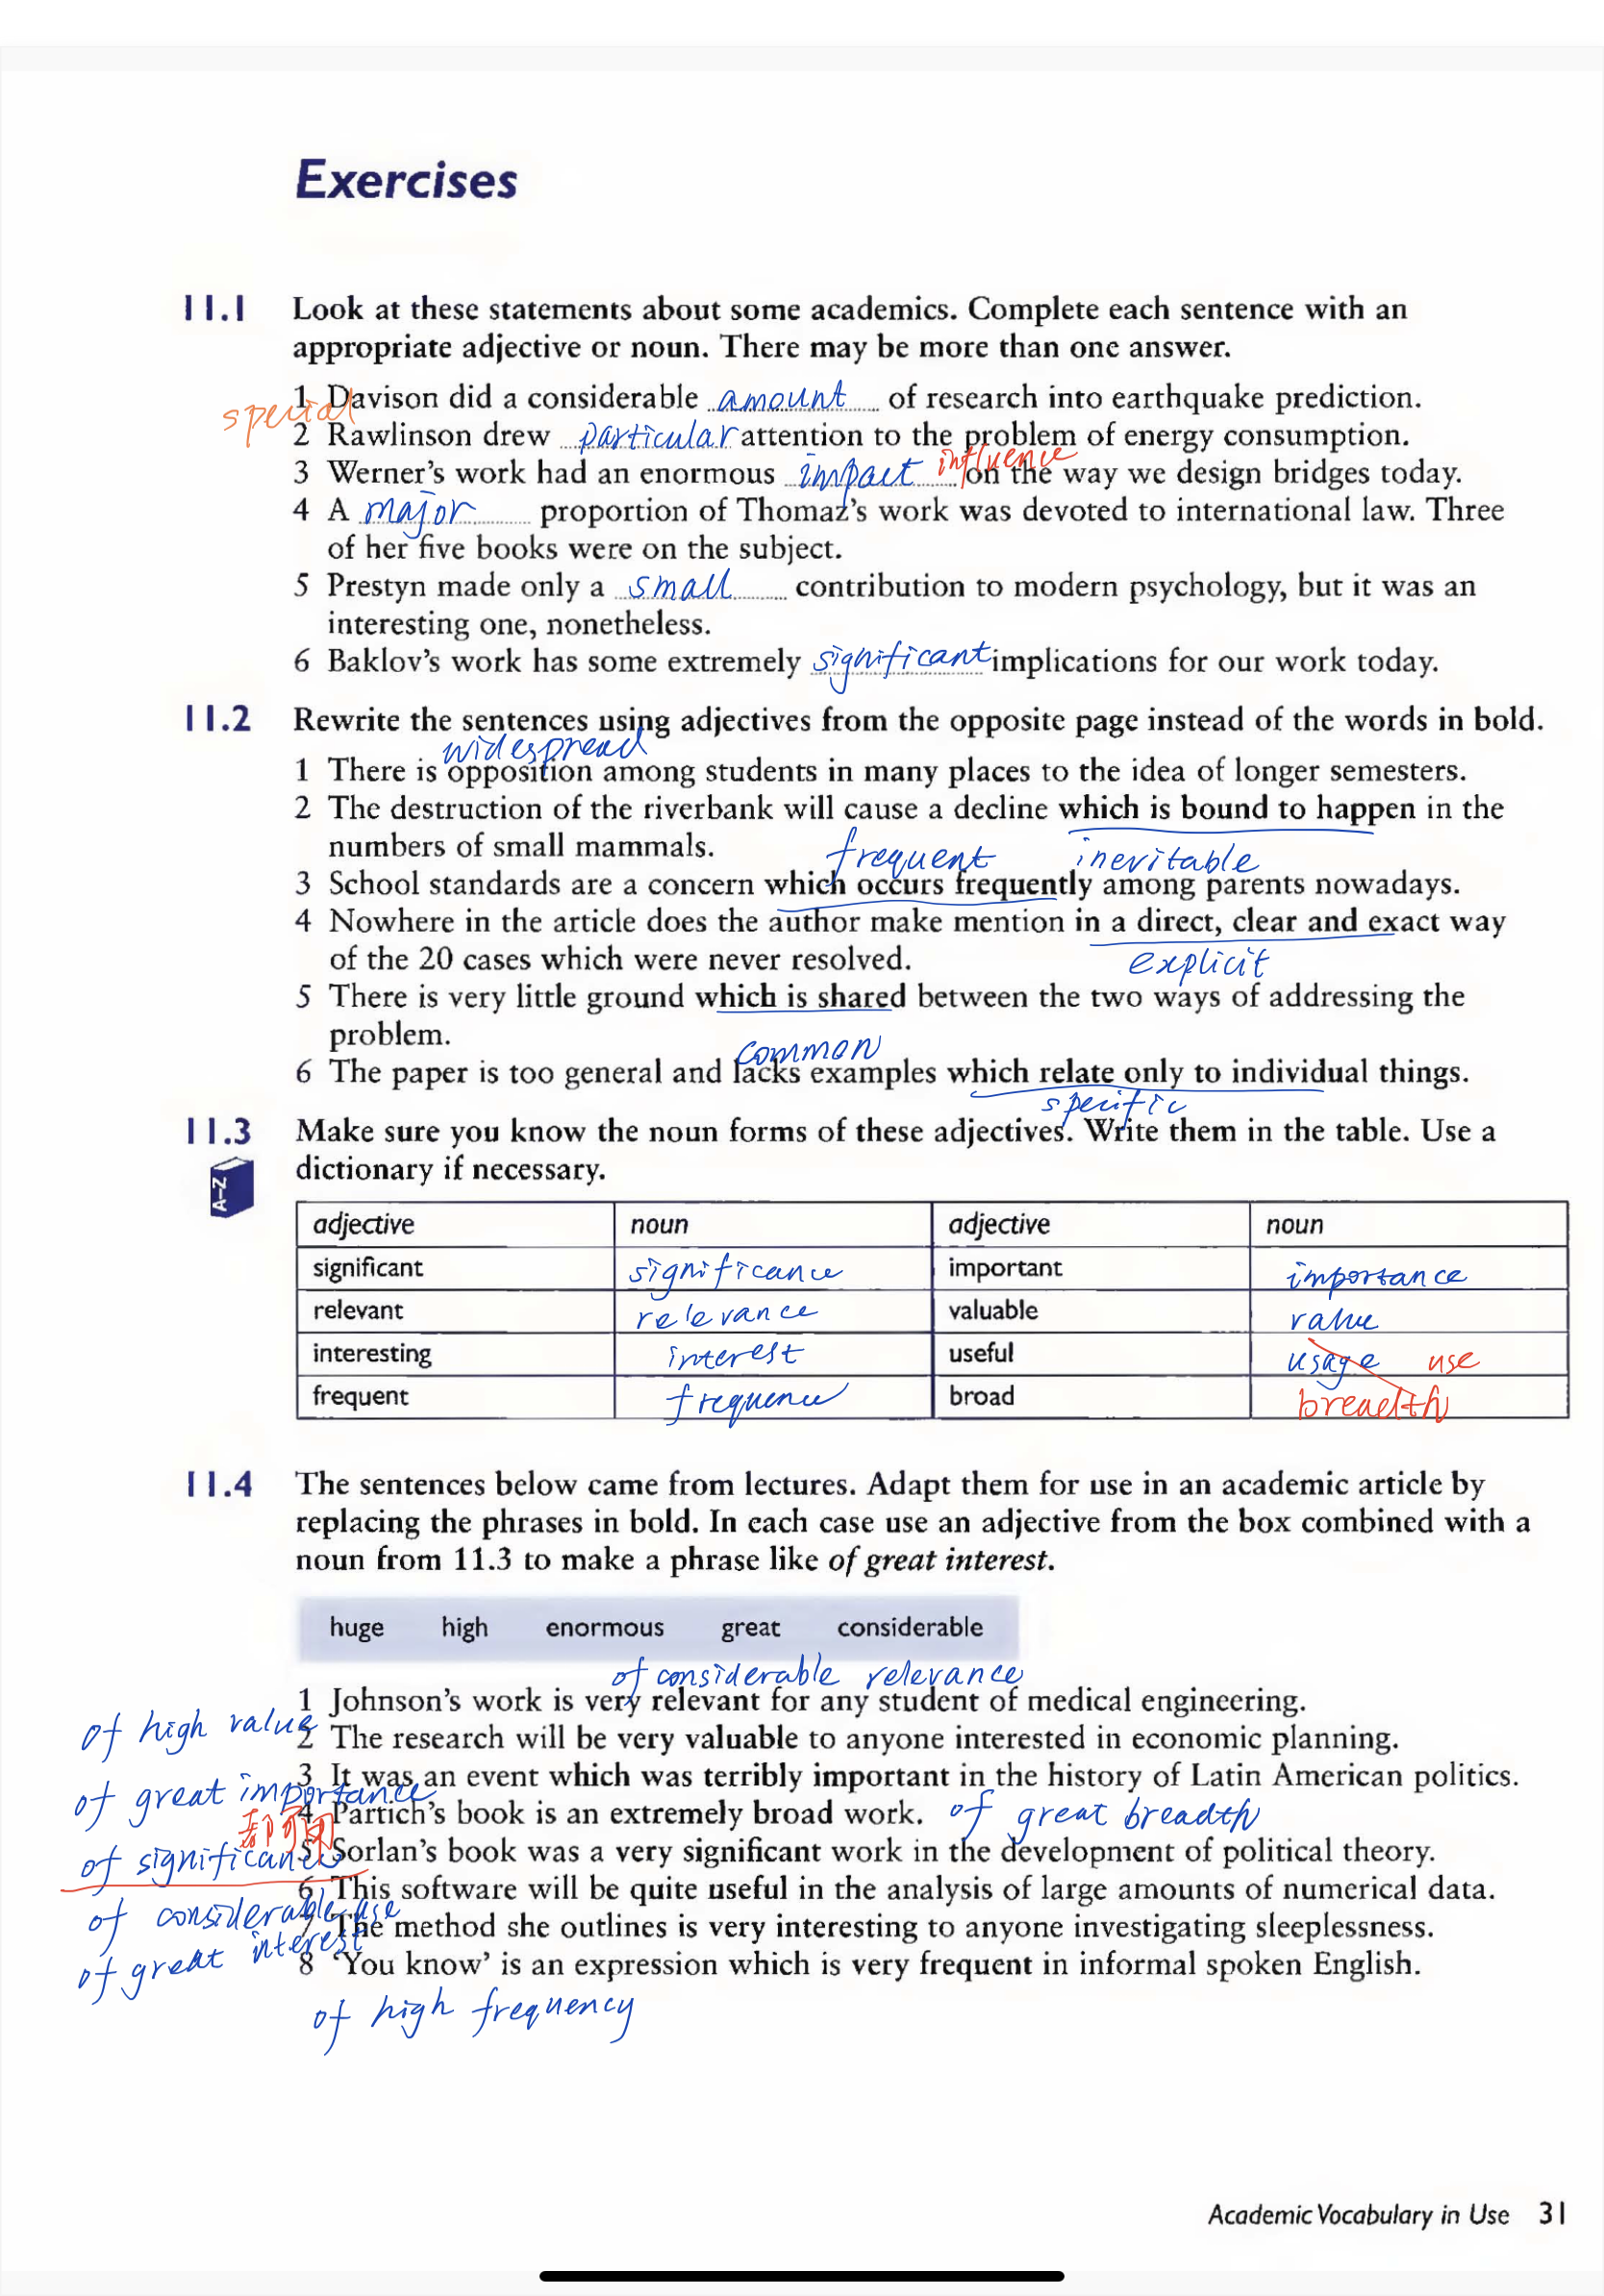 Exercises
11.1 Look at these statements about some academics. Complete each sentence with an
appropriate adjective or noun. There may be more than one answer.
1 Davison did a considerable amount of research into earthquake prediction.
special
2 Rawlinson drew particular attention to the problem of energy consumption.
3 Werner's work had an enormous impact influence on the way we design bridges today.
4 A major proportion of Thomaz's work was devoted to international law. Three
of her five books were on the subject.
5 Prestyn made only a small contribution to modern psychology, but it was an
interesting one, nonetheless.
6 Baklov's work has some extremely significant implications for our work today.
11.2 Rewrite the sentences using adjectives from the opposite page instead of the words in bold.
widespread
1 There is opposition among students in many places to the idea of longer semesters.
2 The destruction of the riverbank will cause a decline which is bound to happen in the
numbers of small mammals.
frequent inevitable
3 School standards are a concern which occurs frequently among parents nowadays.
4 Nowhere in the article does the author make mention in a direct, clear and exact way
of the 20 cases which were never resolved.
explicit
5 There is very little ground which is shared between the two ways of addressing the
problem.
common
6 The paper is too general and lacks examples which relate only to individual things.
specific
11.3 Make sure you know the noun forms of these adjectives. Write them in the table. Use a
dictionary if necessary.
A-Z
adjective noun adjective noun
significant significance important importance
relevant relevance valuable value
interesting interest useful usage use
frequent frequence broad breadth
11.4 The sentences below came from lectures. Adapt them for use in an academic article by
replacing the phrases in bold. In each case use an adjective from the box combined with a
noun from 11.3 to make a phrase like of great interest.
huge high enormous great considerable
of considerable relevance
1 Johnson's work is very relevant for any student of medical engineering.
of high value
2 The research will be very valuable to anyone interested in economic planning.
3 It was an event which was terribly important in the history of Latin American politics.
of great importance
4 Partich's book is an extremely broad work. of great breadth
都可用
5 Sorlan's book was a very significant work in the development of political theory.
of significance
6 This software will be quite useful in the analysis of large amounts of numerical data.
of considerable use
7 The method she outlines is very interesting to anyone investigating sleeplessness.
of great interest
8 'You know' is an expression which is very frequent in informal spoken English.
of high frequency
Academic Vocabulary in Use 31